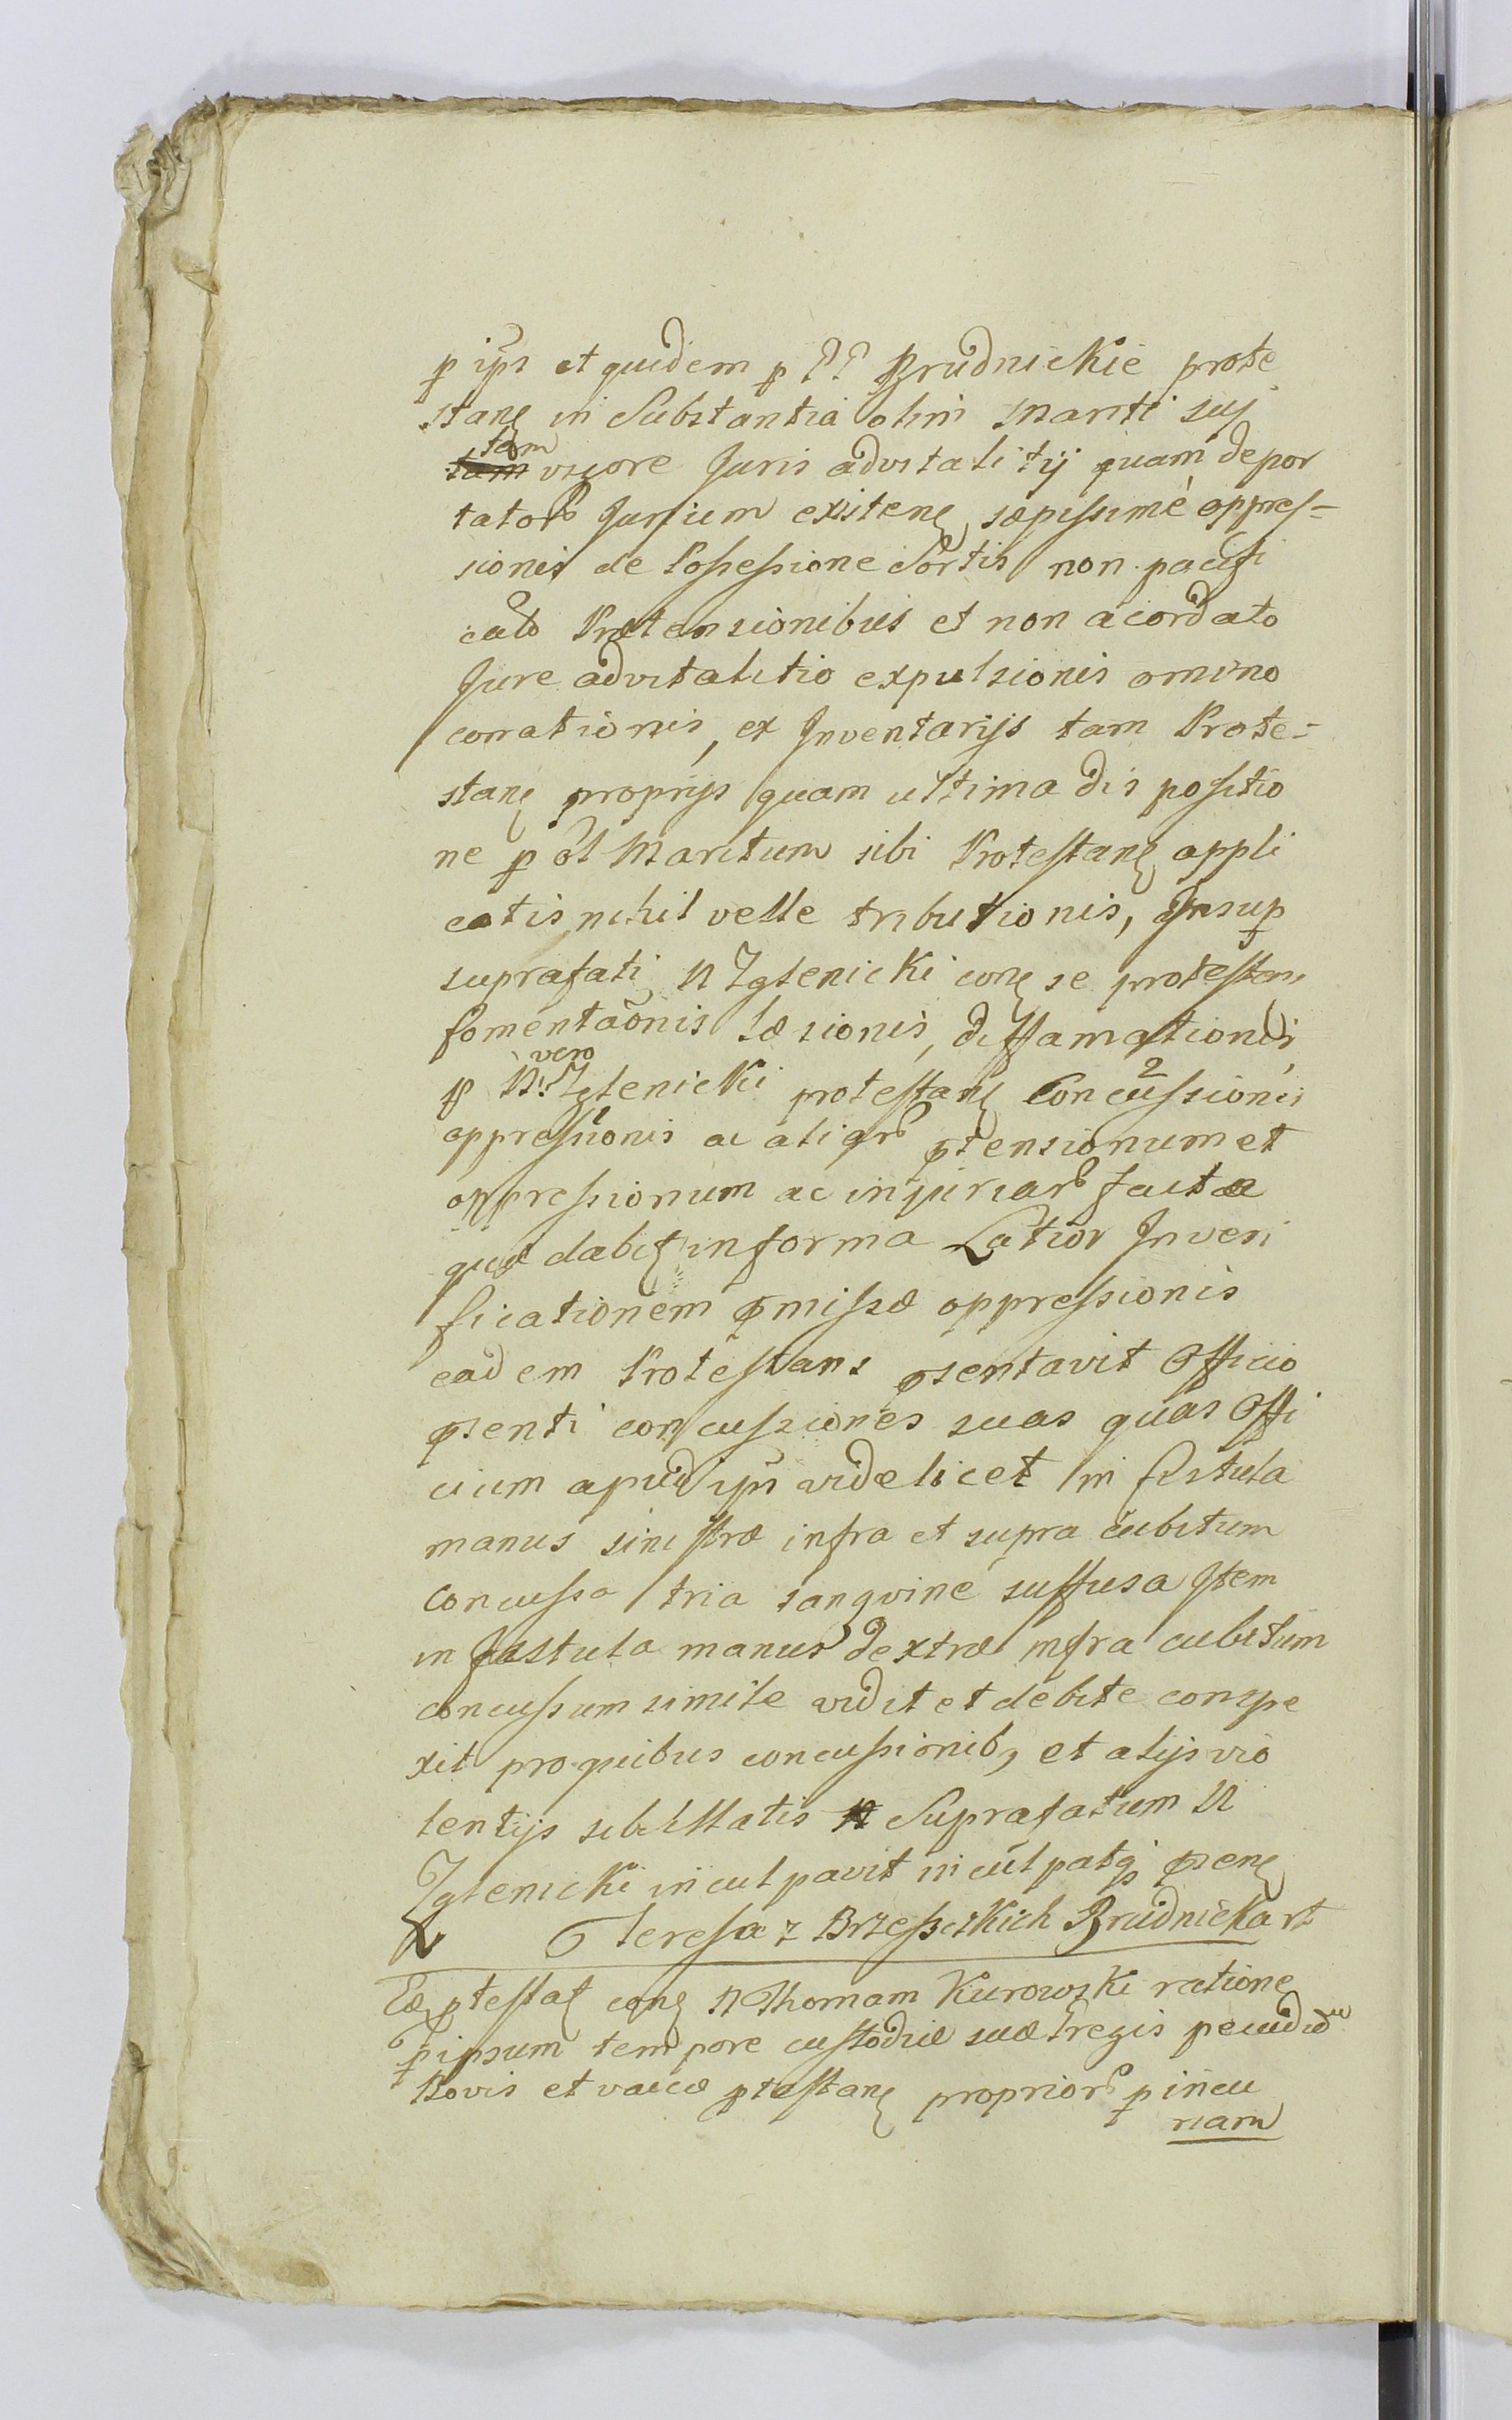 p ips et quidem p PP Brudnickie prote
stane in Substantia olim Mariti suj
tam vigore Juris advitalitij quam depor
tator Jurium existene sæpissimè oppres=
sionis de Possessione Sortis non pacifi
cato Prætensionibus et non acordato
Jure advitalitio expulsionis omnino
conationis, ex Inventarijs tam Prote=
stane proprijs quam ultima dis positio
ne p ol Maritum sibi Protestane appli
catis nihil velle tributionis, Insup
suprafati N Zglenicki cone se protestan
fomentaonis Læsionis, diffamationis,
p N: vero Zglenicki protestane Concussionis
oppressionis ac aliar ptensionum et
oppressionum ac injuriar factæ
quæ dabit in forma Latior In veri
ficationem pmissæ oppressionis
eadem Protestans psentavit Officio
psenti concussiones suas quas Offi
cium apud ips videlicet in fistula
manus sinistræ infra et supra cubitum
concussa tria sangvine suffusa Item
in fistula manus dextræ infra cubitum
concussum simile vidit et debite conspe
xit pro quibus concussionib, et alijs vio
lentijs sibi illatis Suprafatum N
Zglenicki inculpavit in culpatq psene
Teresa z Brzesciskich Brudnicka
Eæ ptestat cone N Thomam Kurowski ratione
p ipsum tempore custodiæ suæ Gregis pecudu
Bovis et vaccæ ptestane proprior p incu
riam